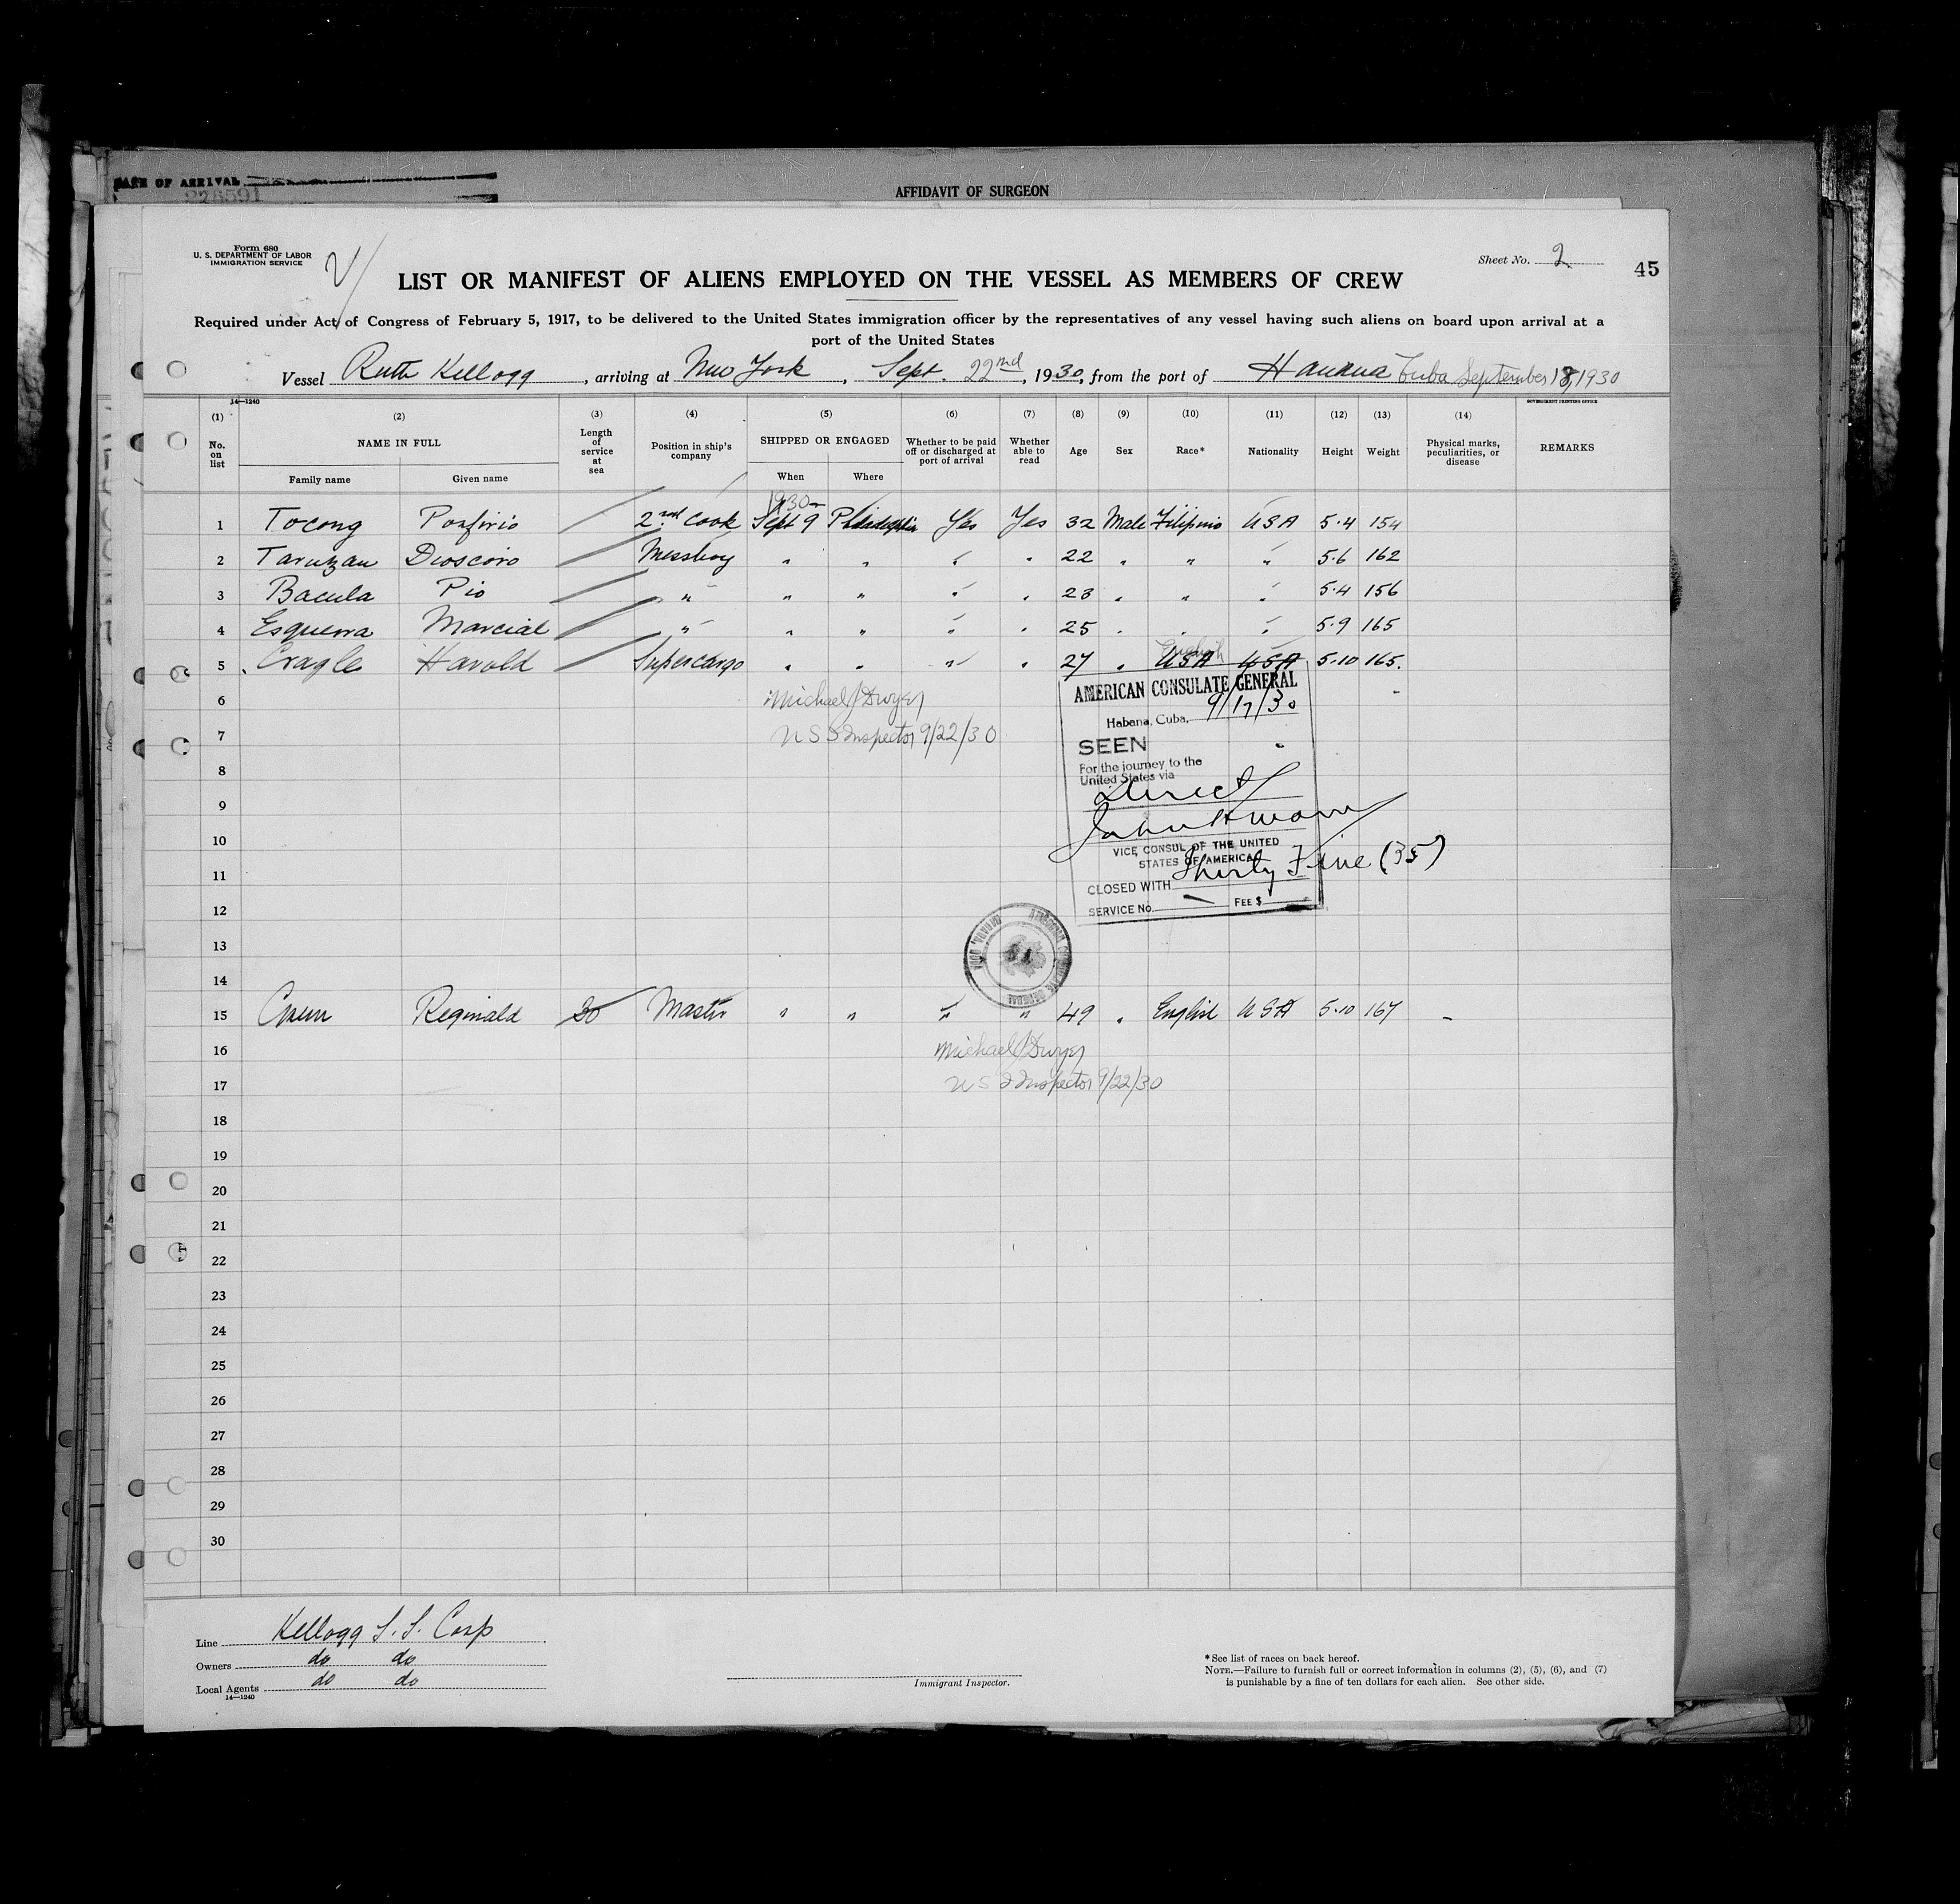 DATE OF ARRIVAL
228591
AFFIDAVIT OF SURGEON
Form 680
U. S. DEPARTMENT OF LABOR
IMMIGRATION SERVICE
Sheet No. 2
45
LIST OR MANIFEST OF ALIENS EMPLOYED ON THE VESSEL AS MEMBERS OF CREW
Required under Act of Congress of February 5, 1917, to be delivered to the United States immigration officer by the representatives of any vessel having such aliens on board upon arrival at a
port of the United States
Vessel Ruth Kellogg, arriving at New York, Sept. 22nd, 1930, from the port of Havana Cuba September 18, 1930
14—1240
GOVERNMENT PRINTING OFFICE
(1) (2) (3) (4) (5) (6) (7) (8) (9) (10) (11) (12) (13) (14)
No. on list NAME IN FULL Length of service at sea Position in ship's company SHIPPED OR ENGAGED Whether to be paid off or discharged at port of arrival Whether able to read Age Sex Race* Nationality Height Weight Physical marks, peculiarities, or disease REMARKS
Family name Given name When Where
1930
1 Tocong Porfirio 2nd Cook Sept 9 Philadelphia Yes Yes 32 Male Filipino USA 5·4 154
2 Taruzan Dioscoro Messboy " " " " 22 " " " 5·6 162
3 Bacula Pio " " " " " 23 " " " 5·4 156
4 Esguerra Marcial " " " " " 25 " " " 5·9 165
English
5 Cragle Harold Supercargo " " " " 27 " USA USA 5·10 165.
6 Michael J Dwyer
7 U S I Inspector 9/22/30
AMERICAN CONSULATE GENERAL
Habana, Cuba, 9/17/30
SEEN
For the journey to the
United States via
Direct
VICE CONSUL OF THE UNITED
STATES OF AMERICA
CLOSED WITH Thirty Five (35)
SERVICE No. FEE $
8
9
10
11
12
13
14
15 Reginald 30 Master " " " " 49 " English USA 5·10 167 –
16 Michael J Dwyer
17 U S I Inspector 9/22/30
18
19
20
21
22
23
24
25
26
27
28
29
30
Line Kellogg S. S. Corp
Owners do do
Local Agents do do
14—1240
Immigrant Inspector.
*See list of races on back hereof.
NOTE.—Failure to furnish full or correct information in columns (2), (5), (6), and (7)
is punishable by a fine of ten dollars for each alien. See other side.